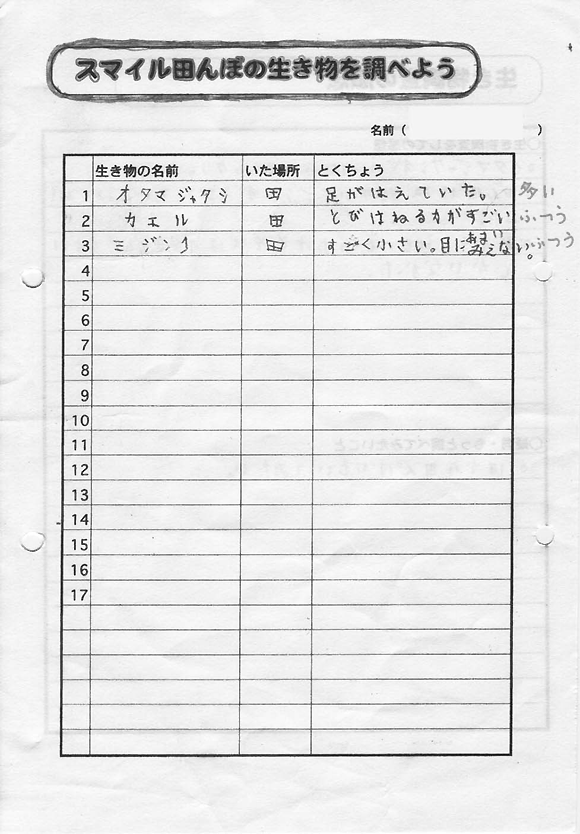 スマイル田んぼの生き物を調べよう
名前（ ）
生き物の名前 いた場所 とくちょう
1 オタマジャクシ 田 足がはえていた。 多い
2 カエル 田 とびはねる力がすごい ふつう
3 ミジンコ 田 すごく小さい。目にあまりみえない。ふつう
4
5
6
7
8
9
10
11
12
13
14
15
16
17